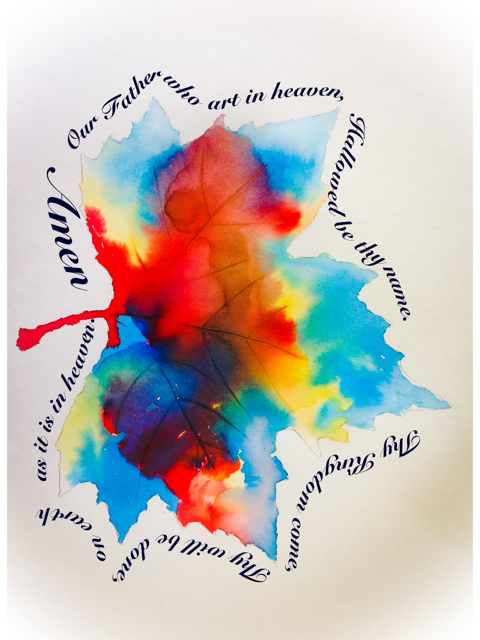 Our Father who art in heaven,
Hallowed be thy name.
Thy Kingdom come,
Thy will be done,
on earth
as it is in heaven.
Amen